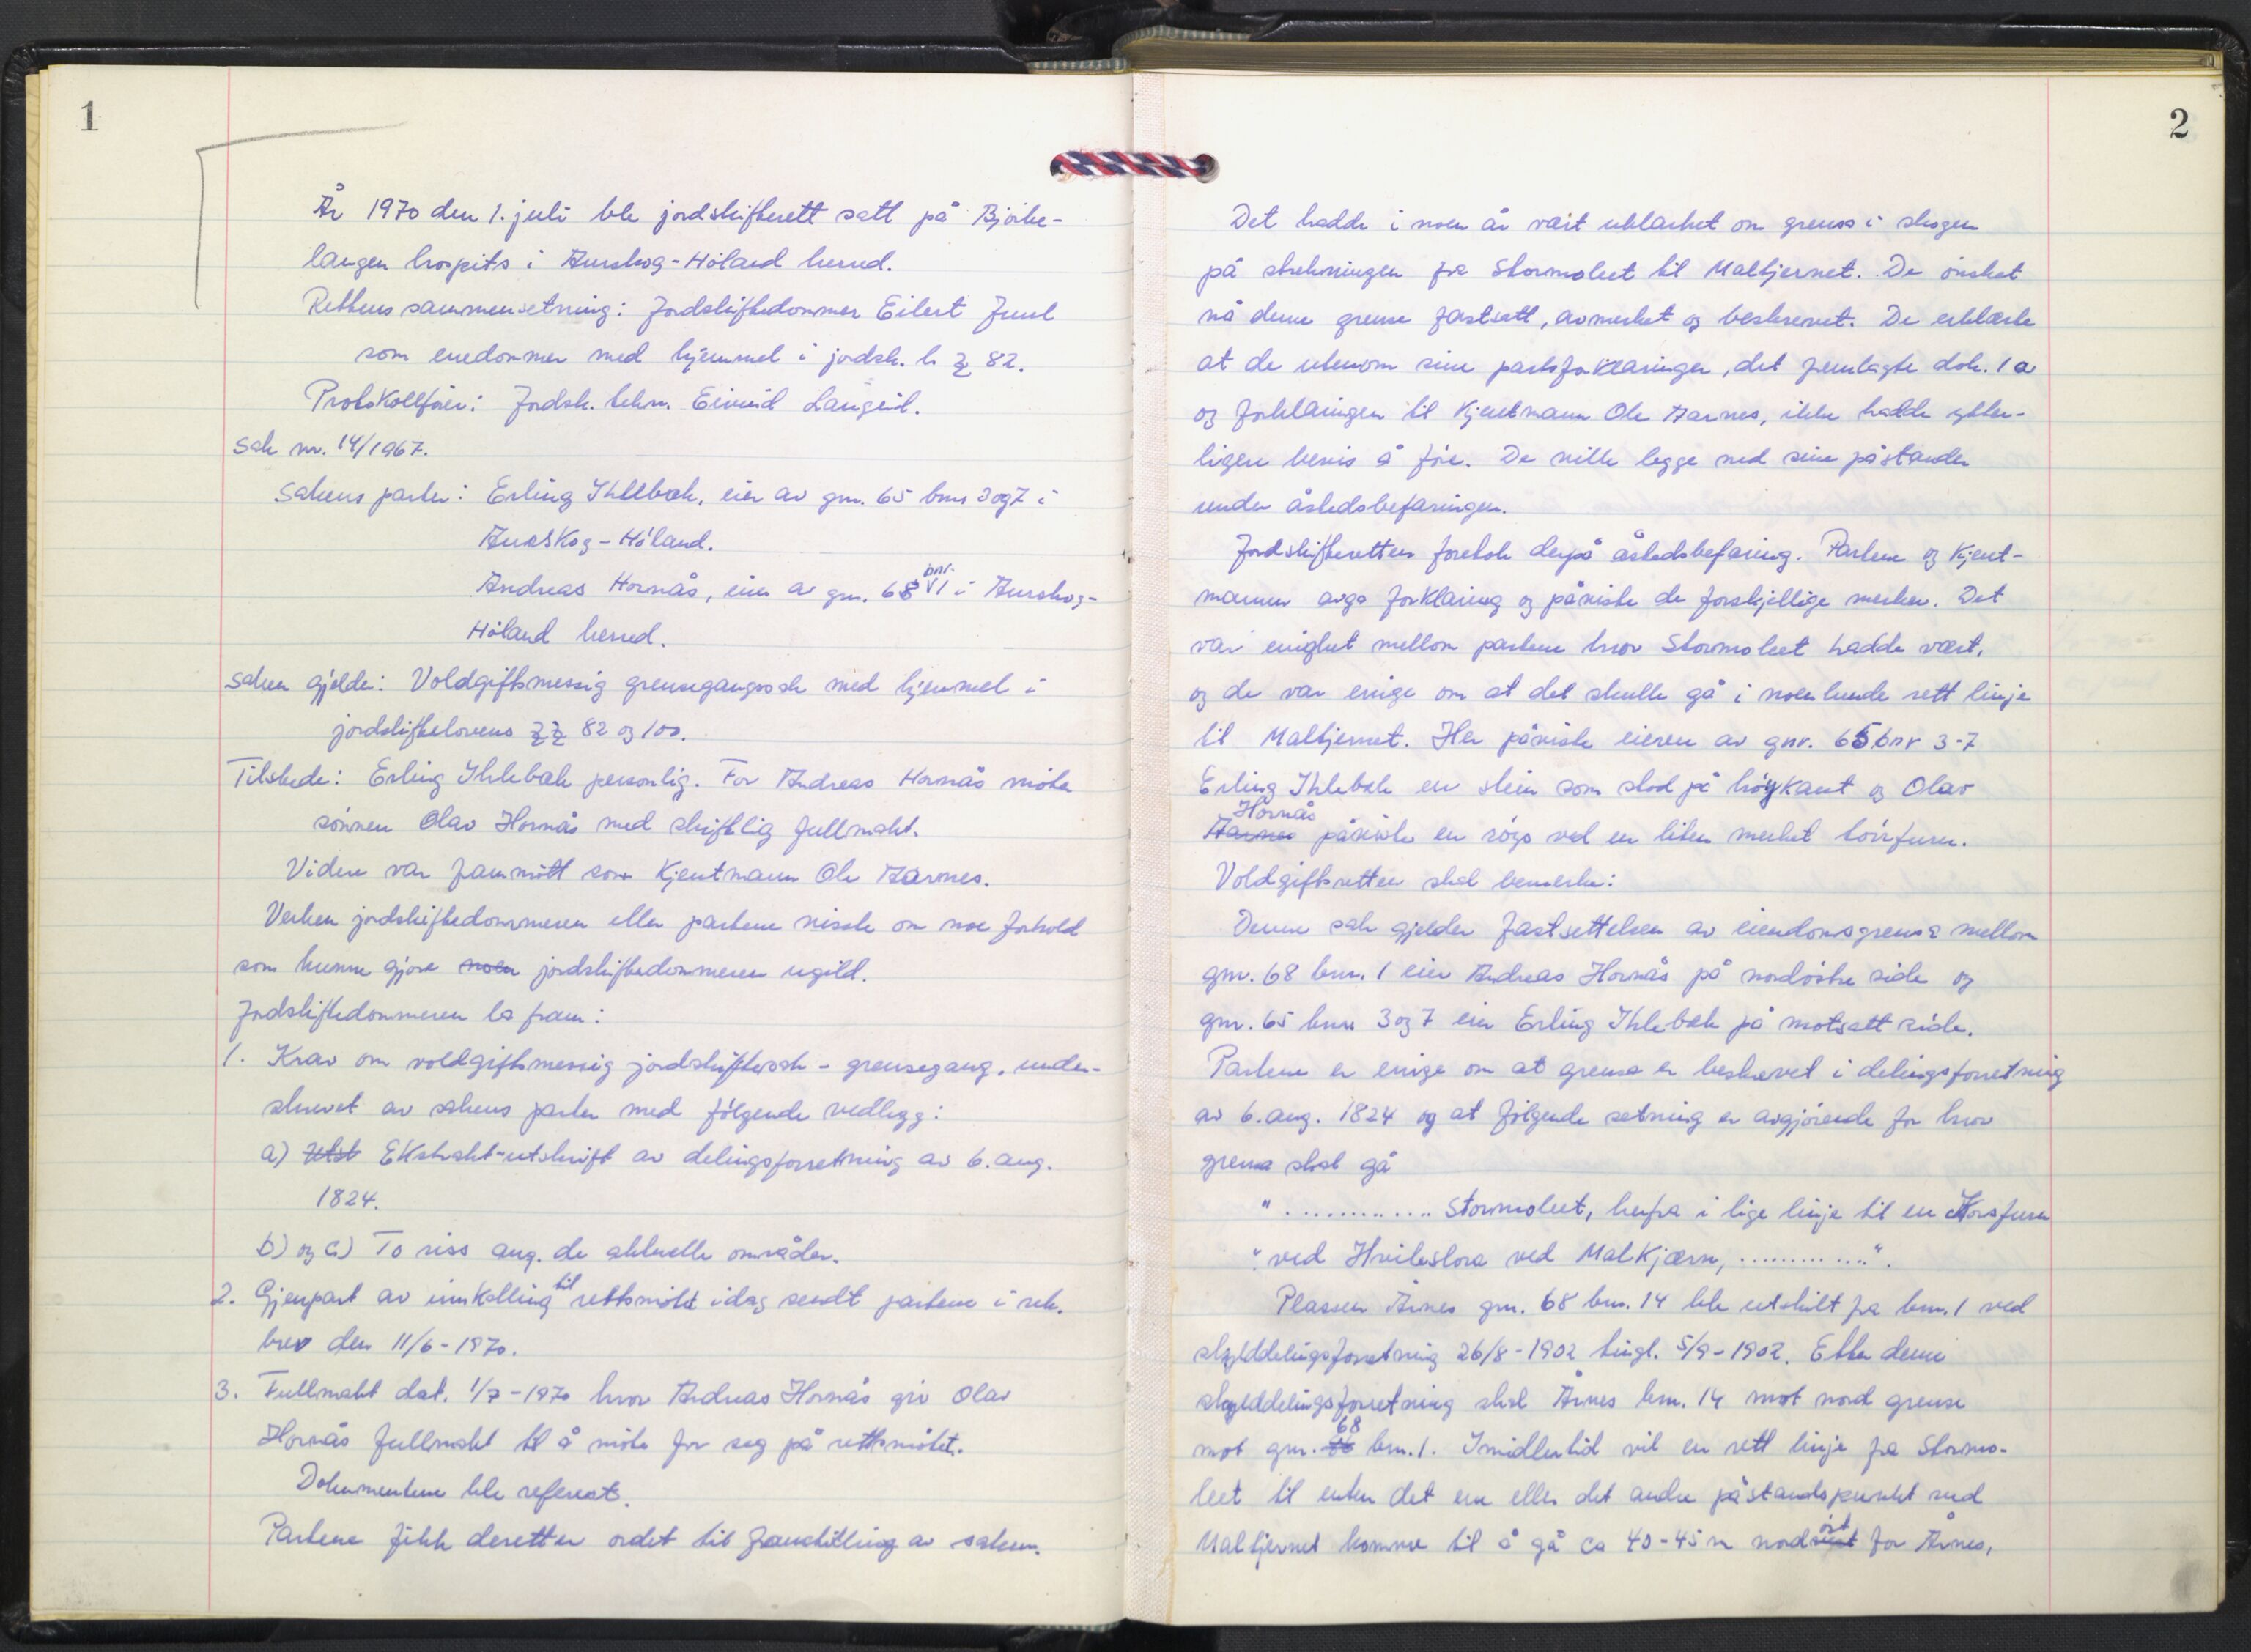 1
År 1970 den 1. juli ble jordskifterett satt på Bjørke-
langen hospits i Aurskog-Høland herred.
Rettens sammensetning: Jordskiftedommer Eilert Juul
som enedommer med hjemmel i jordsk. l. § 82.
Protokollfører: Jordsk. tekn. Eivind Langeid.
Sak nr. 14/1967.
Sakens parter: Erling Ihlebæk, eier av gnr. 65 bnr 3 og 7 i
Aurskog-Høland.
Andreas Hornås, eier av gnr. 68 bnr. 1 i Aurskog-
Høland herred.
Saken gjelder: Voldgiftsmessig grensegangssak med hjemmel i
jordskiftelovens §§ 82 og 100.
Tilstede: Erling Ihlebæk personlig. For Andreas Hornås møter
sønnen Olav Hornås med skriftlig fullmakt.
Videre var frammøtt som kjentmann Ole Aarnes.
Verken jordskiftedommeren eller partene visste om noe forhold
som kunne gjøre noen jordskiftedommeren ugild.
Jordskiftedommeren la fram:
1. Krav om voldgiftsmessig jordskiftesak - grensegang, under-
skrevet av sakens parter med følgende vedlegg:
a) Utst Ekstrakt-utskrift av delingsforretning av 6. aug.
1824.
b) og c) To riss ang. de aktuelle områder.
2. Gjenpart av innkalling til rettsmøtet idag sendt partene i rek.
brev den 11/6-1970.
3. Fullmakt dat. 1/7-1970 hvor Andreas Hornås gir Olav
Hornås fullmakt til å møte for seg på rettsmøtet.
Dokumentene ble referert.
Partene fikk deretter ordet til framstilling av saken.
2
Det hadde i noen år vært uklarhet om grensa i skogen
på strekningen fra Stormoleet til Maltjernet. De ønsket
nå denne grense fastsatt, avmerket og beskrevet. De erklærte
at de utenom sine partsforklaringer, det fremlagte dok. 1 a
og forklaringen til kjentmann Ole Aarnes, ikke hadde ytter-
ligere bevis å føre. De ville legge ned sine påstander
under åstedsbefaringen.
Jordskifteretten foretok derpå åstedsbefaring. Partene og kjent-
mannen avga forklaring og påviste de forskjellige merker. Det
var enighet mellom partene hvor Stormoleet hadde vært,
og de var enige om at det skulle gå i noenlunde rett linje
til Maltjernet. Her påviste eieren av gnr. 65 bnr 3-7
Erling Ihlebæk en stein som stod på høykant og Olav
Hornås
Aarnes påviste en røys ved en liten merket tørrfuru.
Voldgiftsretten skal bemerke:
Denne sak gjelder fastsettelsen av eiendomsgrensa mellom
gnr. 68 bnr. 1 eier Andreas Hornås på nordøstre side og
gnr. 65 bnr 3 og 7 eier Erling Ihlebæk på motsatt side.
Partene er enige om at grensa er beskrevet i delingsforretning
av 6. aug. 1824 og at følgende setning er avgjørende for hvor
grensa skal gå
" .............. Stormoleet, herfra i lige linje til en Korsfuru
" ved Hvileslora ved Malkjærn, ............. ".
Plassen Årnes gnr. 68 bnr. 14 ble utskilt fra bnr. 1 ved
skylddelingsforretning 26/8-1902 tingl. 5/9-1902. Etter denne
skylddelingsforretning skal Årnes bnr. 14 mot nord grense
mot gnr. 68 bnr. 1. Imidlertid vil en rett linje fra Stormo-
leet til enten det ene eller det andre påstandspunkt ved
Maltjernet komme til å gå ca 40-45 m nordøst for Årnes,